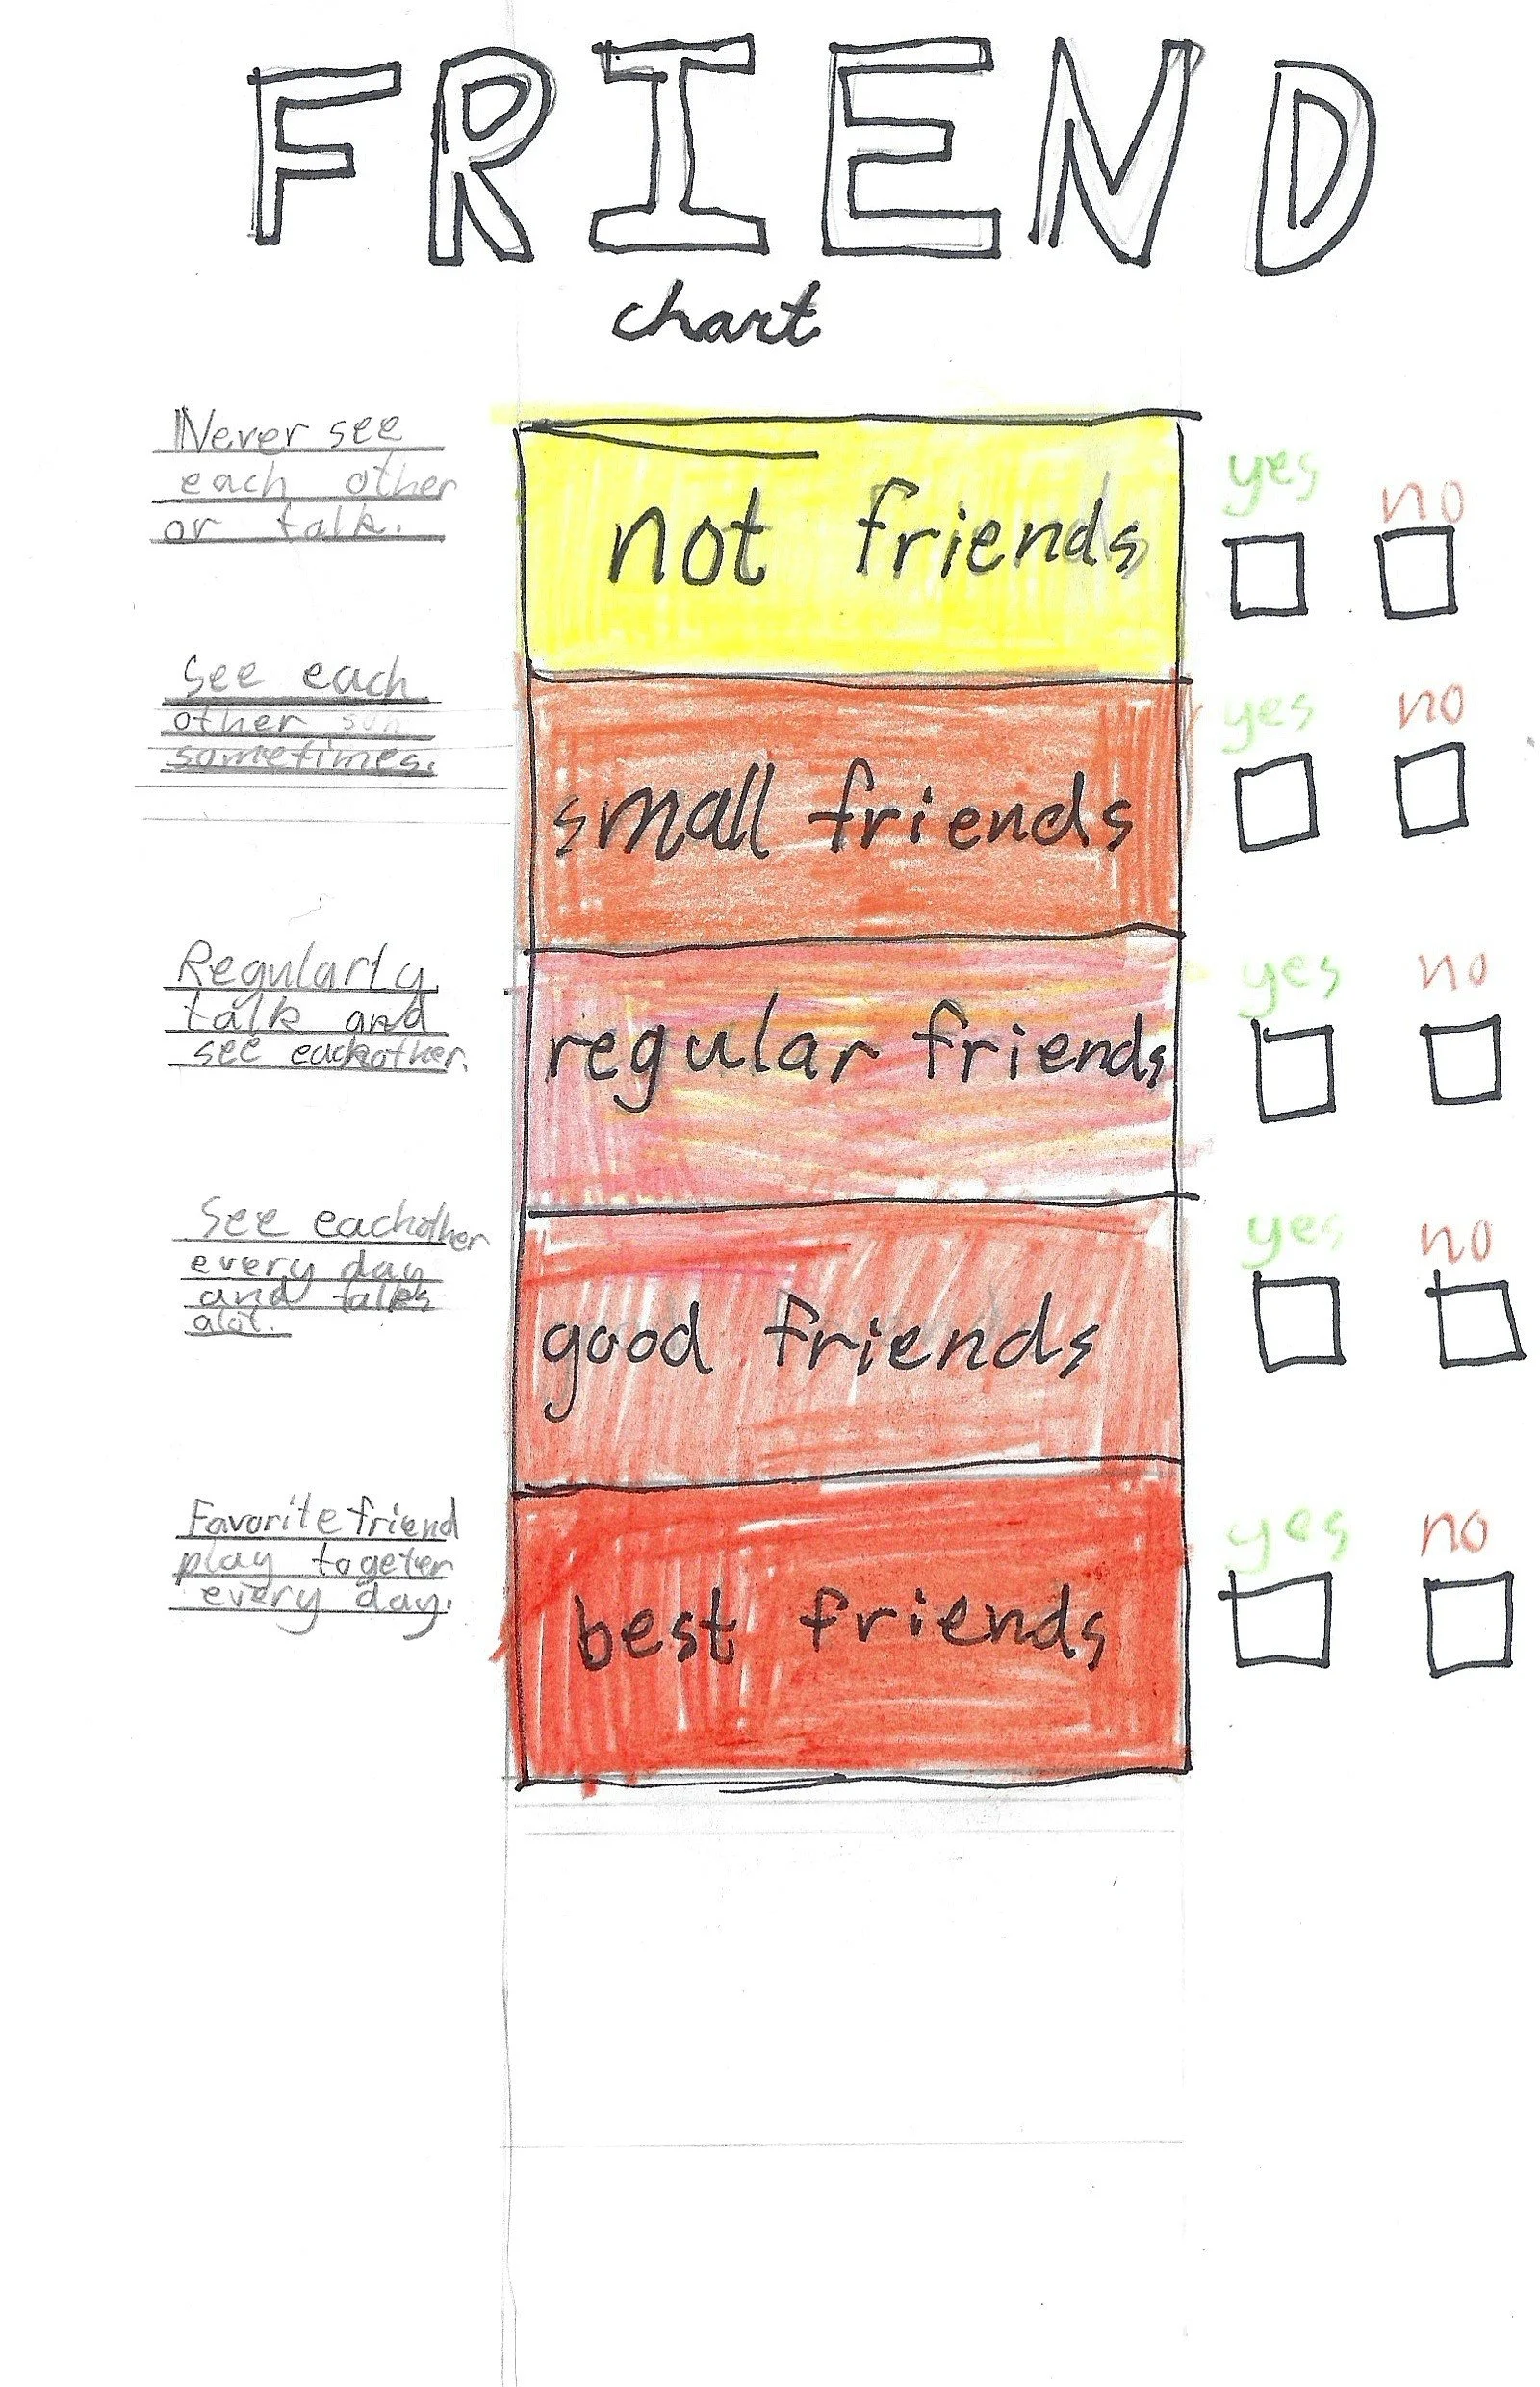 FRIEND
chart
Never see
each other
or talk.
not friends
yes no
See each
other som
sometimes.
small friends
yes no
Regularly
talk and
see eachother.
regular friends
yes no
See eachother
every day
and talks
alot.
good friends
yes no
Favorite friend
play togeter
every day.
best friends
yes no